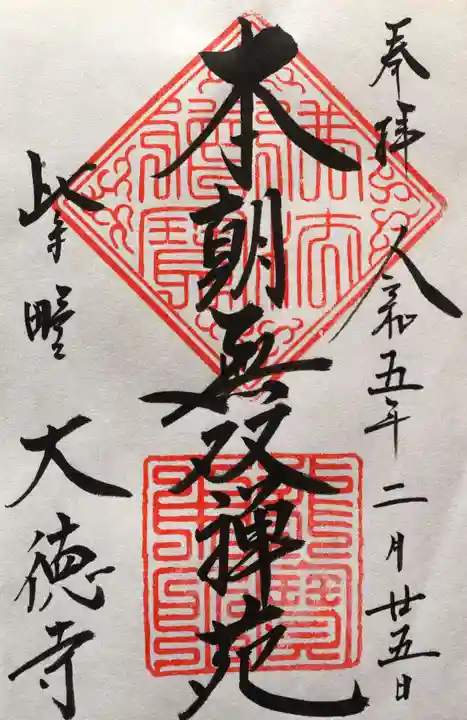 奉拝 令和五年二月廿五日
本朝無双禅苑
紫野 大徳寺